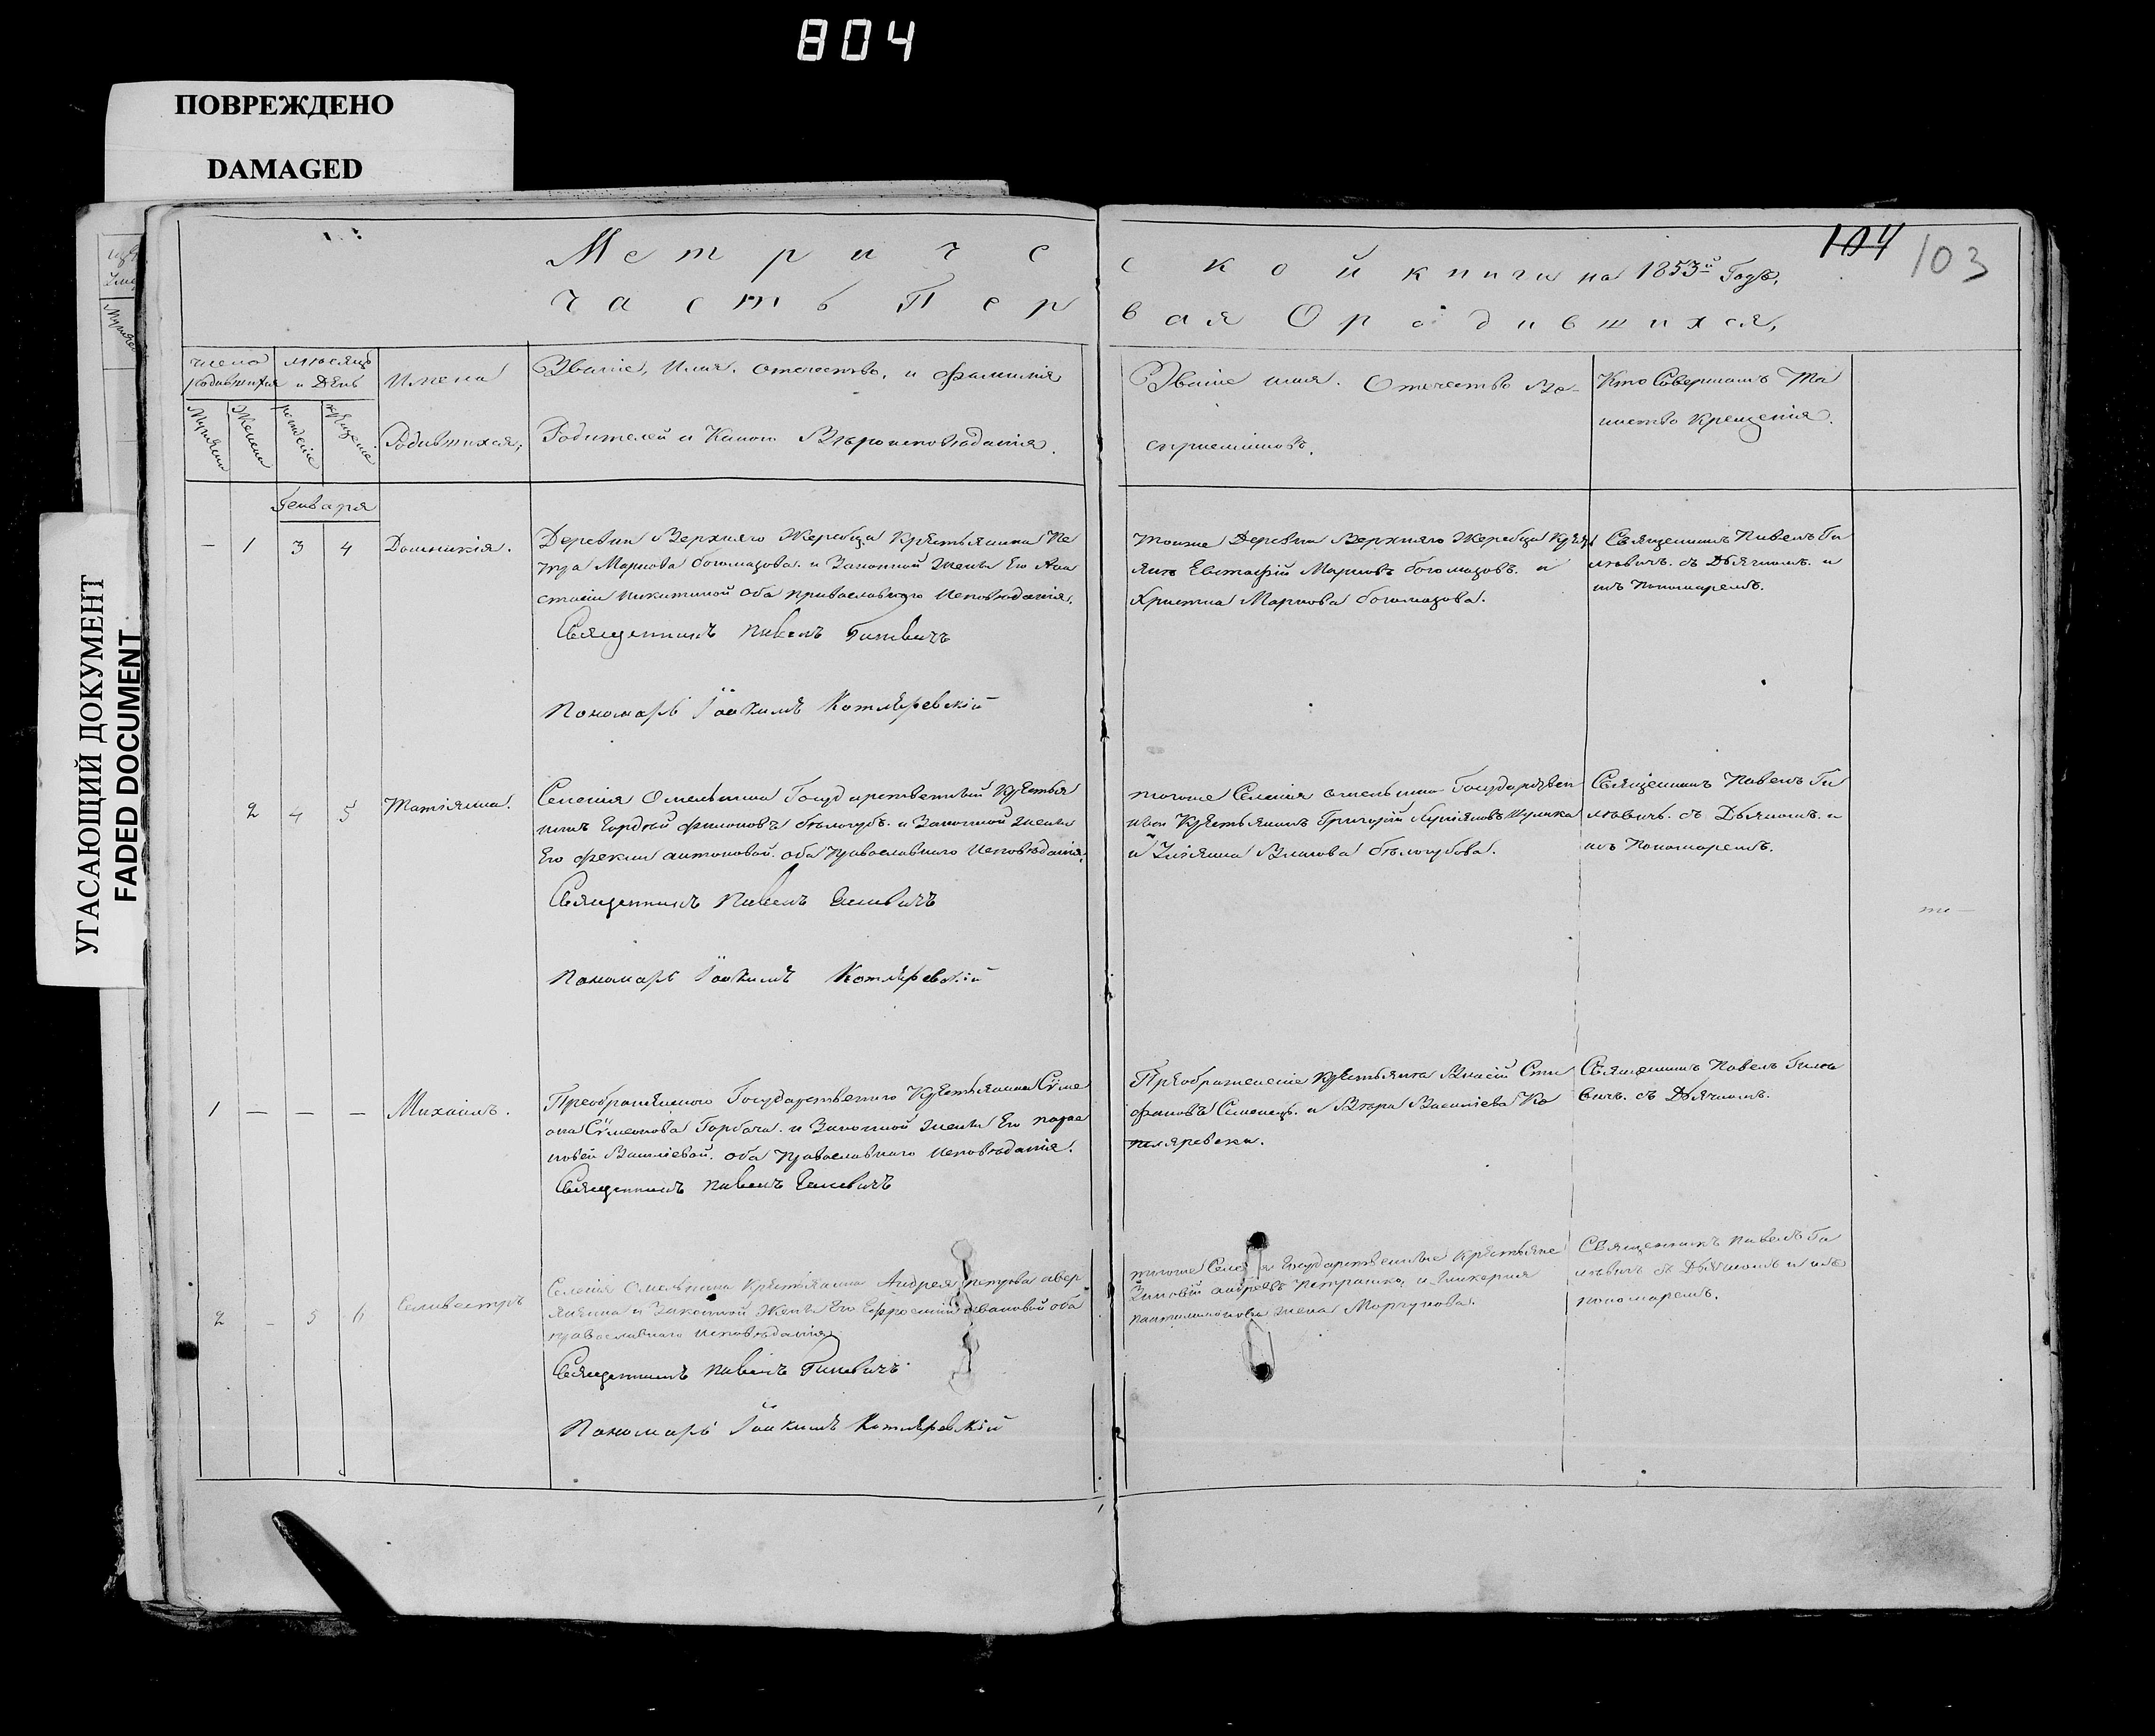 804
ПОВРЕЖДЕНО
DAMAGED
УГАСАЮЩИЙ ДОКУМЕНТ
FADED DOCUMENT
Метриче
часть Пер
ской книги на 1853й Годъ,
вая О родившихся,
104 103
число родившихся
мѣсяцъ и День
Имена Родившихся,
Званіе, Имя, отечество, и фамилія
Родителей и Какого Вѣроисповѣданія.
Званіе имя. Отечество Во-
спріемниковъ.
Кто Совершалъ Та
инство Крещенія.
Генваря
– 1 3 4 Домникія.
Деревни Верхняго Жеребца Крестьянина Пе
тра Маркова богомазова. и Законной жены Его Ана
стасіи Никитиной оба православного исповѣданія.
Священникъ Павелъ
Пономарь Іоакимъ Котляревскій
Тойже Деревни Верхняго Жеребца
Евстафій Марковъ богомазовъ. и
Христина Маркова богомазова.
Священникъ Павелъ Ги
левичъ. съ Дьячкомъ. и
Пономаремъ.
2 4 5 Татіянна.
Селенія Омельника Государственный Крестья
нинъ Гордѣй Филоновъ бѣлогубъ. и Законной жены
Его Феклы антоновой. оба Православнаго Исповѣданія.
Священникъ Павелъ
Пономарь Іоакимъ Котляревскій
тогоже Селенія омельника Государствен
Крестьянинъ Григорій
и Власова бѣлогубова.
Священникъ Павелъ Ги
левичъ. съ Дьячкомъ. и
Пономаремъ.
1 – – – Михаилъ.
Государственного Крестьянина Сѵме
она Сѵмеонова Горбача. и Законной жены Его парас
ковеи Василіевой. оба Православнаго Исповѣданія.
Священникъ Павелъ
Крестьянинъ Власій Сте
фановъ и Вѣра Василіева Ко
тляревска.
Священникъ Павелъ Гиле
вичъ. съ Дьячкомъ.
2 – 5 6 Сильвестръ
Селенія Омельника Крестьянина Андрея петрова авер
янова и Законной Жены Его Ефросиніи ивановой оба
православнаго исповѣданія
Священникъ Павелъ Гилевичъ
Пономарь Іоакимъ Котляревскій
тогоже Государственные Крестьяне
Зиновій андреевъ Петрашко, и Гликерия
жена Моргунова.
Священникъ Павелъ Ги
левичъ съ Дьячкомъ и
пономаремъ.